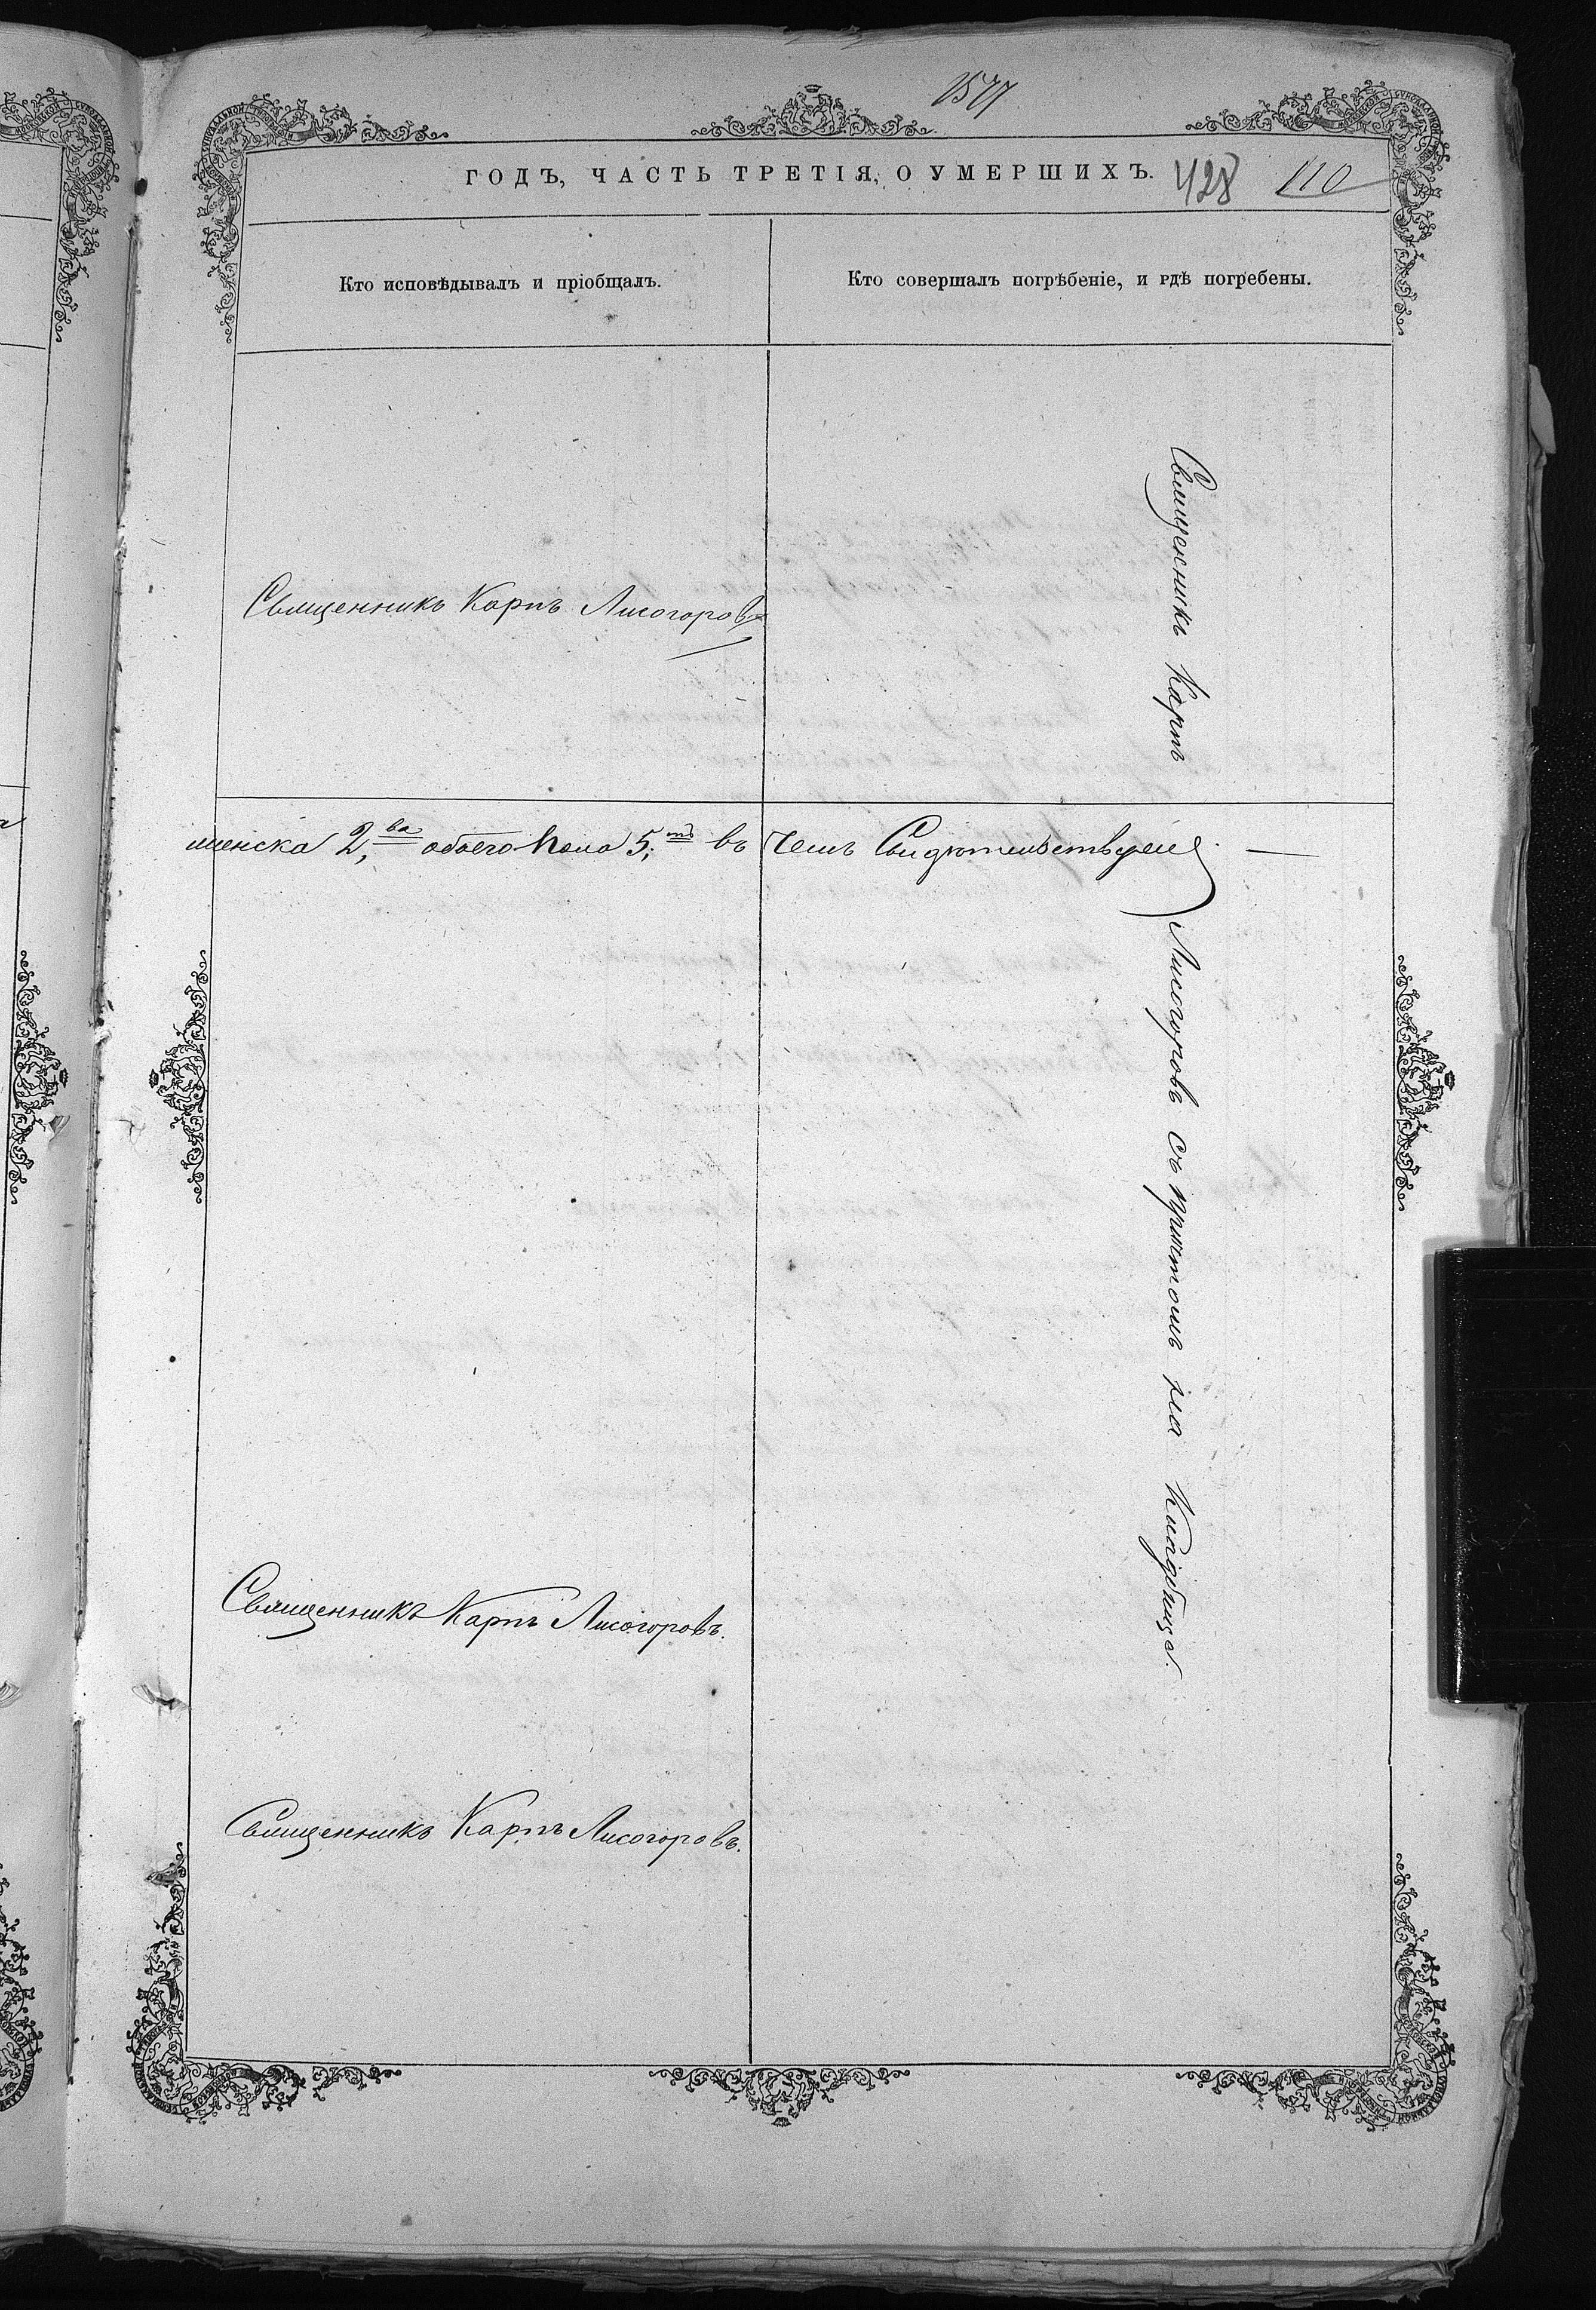 1577
ГОДЪ, ЧАСТЬ ТРЕТІЯ, О УМЕРШИХЪ.
428 110
Кто исповѣдывалъ и пріобщалъ.
Кто совершалъ погрѣбеніе, и гдѣ погребены.
Священникъ Карпъ Лисогоровъ
Священникъ Карпъ
женска 2,ва обоего пола 5,ть въ чемъ Свидѣтельствуемъ
Лисогоровъ съ причтомъ на Кладбищѣ.
Священникъ Карпъ Лисогоровъ.
Священникъ Карпъ Лисогоровъ.